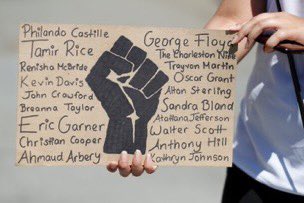 Philando Castille
Tamir Rice
Renisha McBride
Kevin Davis
John Crawford
Breanna Taylor
Eric Garner
Christian Cooper
Ahmaud Arbery
George Floyd
The Charleston Nine
Trayvon Martin
Oscar Grant
Alton Sterling
Sandra Bland
Atatiana Jefferson
Walter Scott
Anthony Hill
Kathryn Johnson